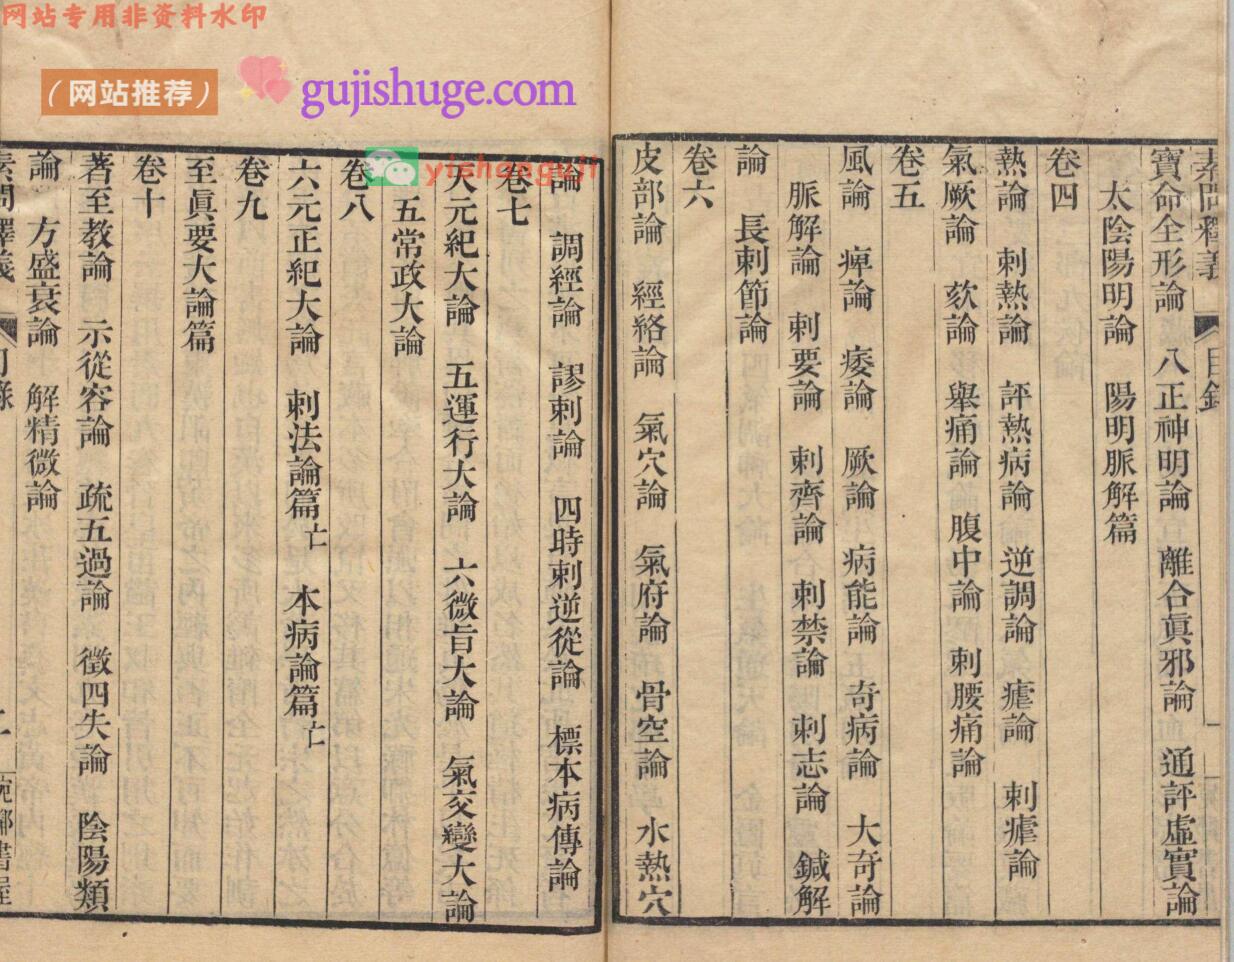 网站专用非资料水印
（网站推荐）
gujishuge.com
yishanguji
素問釋義 目錄 一
寶命全形論 八正神明論 離合眞邪論 通評虛實論
太陰陽明論 陽明脈解篇
卷四
熱論 刺熱論 評熱病論 逆調論 瘧論 刺瘧論
氣厥論 欬論 舉痛論 腹中論 刺腰痛論
卷五
風論 痺論 痿論 厥論 病能論 奇病論 大奇論
脈解論 刺要論 刺齊論 刺禁論 刺志論 鍼解
論 長刺節論
卷六
皮部論 經絡論 氣穴論 氣府論 骨空論 水熱穴
論 調經論 謬刺論 四時刺逆從論 標本病傳論
卷七
天元紀大論 五運行大論 六微旨大論 氣交變大論
五常政大論
卷八
六元正紀大論 刺法論篇亡 本病論篇亡
卷九
至眞要大論篇
卷十
著至教論 示從容論 疏五過論 徵四失論 陰陽類
論 方盛衰論 解精微論
素問釋義 目錄 二 宛鄰書屋